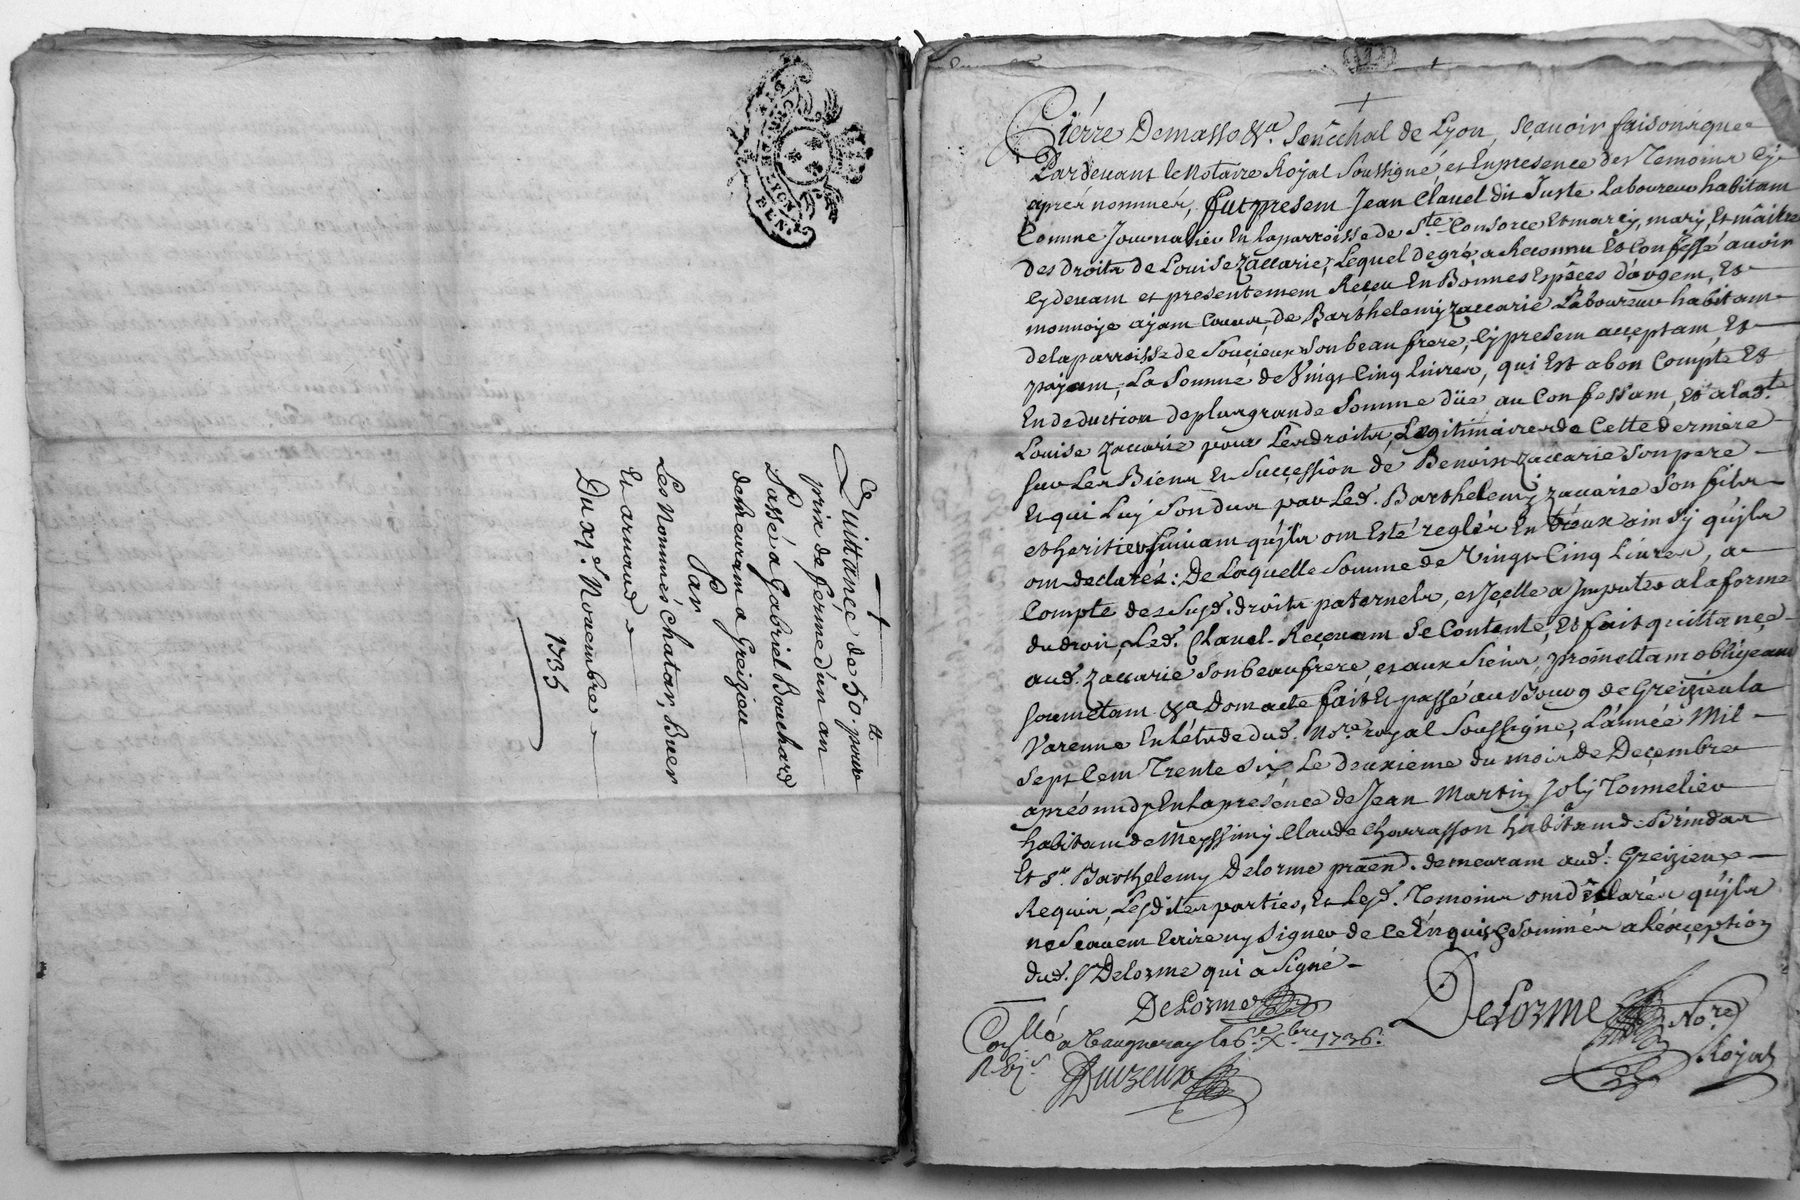 Quittance de 50 ₶ pour
prix de ferme d'un an
Passé a Gabriel Bouchard
demeurant a Greizieu
Par
Les Nommés Chatar, Buer
Et arnaud
Du xj.e Novembre
1735
GEN DE LYON
Pierre Demasso &a. Senechal de Lyon, Sçauoir faisons que
Pardeuant le Notaire Royal Soussigné et En presence des Temoins Cy
aprés nommés, fut present Jean Clauel dit Juste Laboureur habitant
Comme Journalier En la parroisse de S.te Consorce Et marcy, mary Et maitre
des droits de Louise Zaccarie, Lequel de gré, a Reconnu Et Confessé auoir
Cy deuant et presentement Reçeu En Bonnes Espéces d'argent, Et
monnoye ayant Cours, de Barthelemy Zaccarie Laboureur habitant
de la parroisse de Souçieux Son beau frere, Cy present acçeptant, Et
payant, La Somme de Vingt Cinq livres, qui Est a bon Compte Et
En deduction de plus grande Somme düe, au Confessant, Et a lad.te
Louise Zaccarie pour Les droits Legitimaires de Cette derniere
Sur Les Biens Et Succession de Benoist Zaccarie Son pere
Et qui Luy Sont dus par Led. Barthelemy Zaccarie Son fils
et heritier Suiuant qu'ils ont Esté reglés En treux ainsy qu'ils
ont declarés: De Laquelle Somme de Vingt Cinq Liures, a
Compte des Sujd. droits paternels, et Jçelle a Jmputer a la forme
du droit, Led. Clauel Reçeuant Se Contente, Et fait quittançe
aud. Zaccarie Son beau frere, et aux Siens, promettant obligeant
Soumettant &a Dont acte fait Et passé au Bourg de Greizieu la
Varenne En L'étude dud. No.re royal Soussigne, L'année Mil
Sept Cent Trente Six, Le deuxieme du mois de Decembre
aprés midy En la presénce de Jean Martin Joly Tonnelier
habitant de Meyssimy Claude Charrasson habitant de Brindas
Et S.r Barthelemy Delorme praēn. demeurant aud. Greizieu
Requis, Lesdites parties, Et Lesd. Temoins ont déclarés qu'ils
ne Scauent Ecrire ny Signer de Ce Enquis & Sommés a l'éxçeption
dud. S.r Delorme qui a Signé
Delorme
Delorme No.re
Royal
Con.llé a Vaugneray le 6.e Xbre 1736.
R.
Duizeux